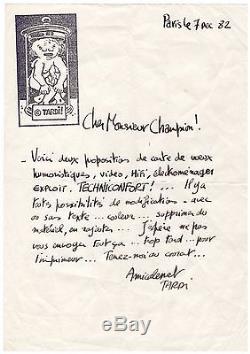 Paris le 7 DEC 82
© TARDI
Cher Monsieur Champion!
_ Voici deux proposition de carte de voeux
humoristiques, video, Hifi, électroménager
exploit. TECHNICONFORT! ... Il y a
totes possibilités de modification _ avec
ou sans texte ... couleur ... supprimer du
matériel, en rajouter ... J'espère ne pas
vous envoyer tout ça ... trop tard ... pour
l'imprimeur ... Tenez-moi au courant ...
Amicalement
TARDI
ebay